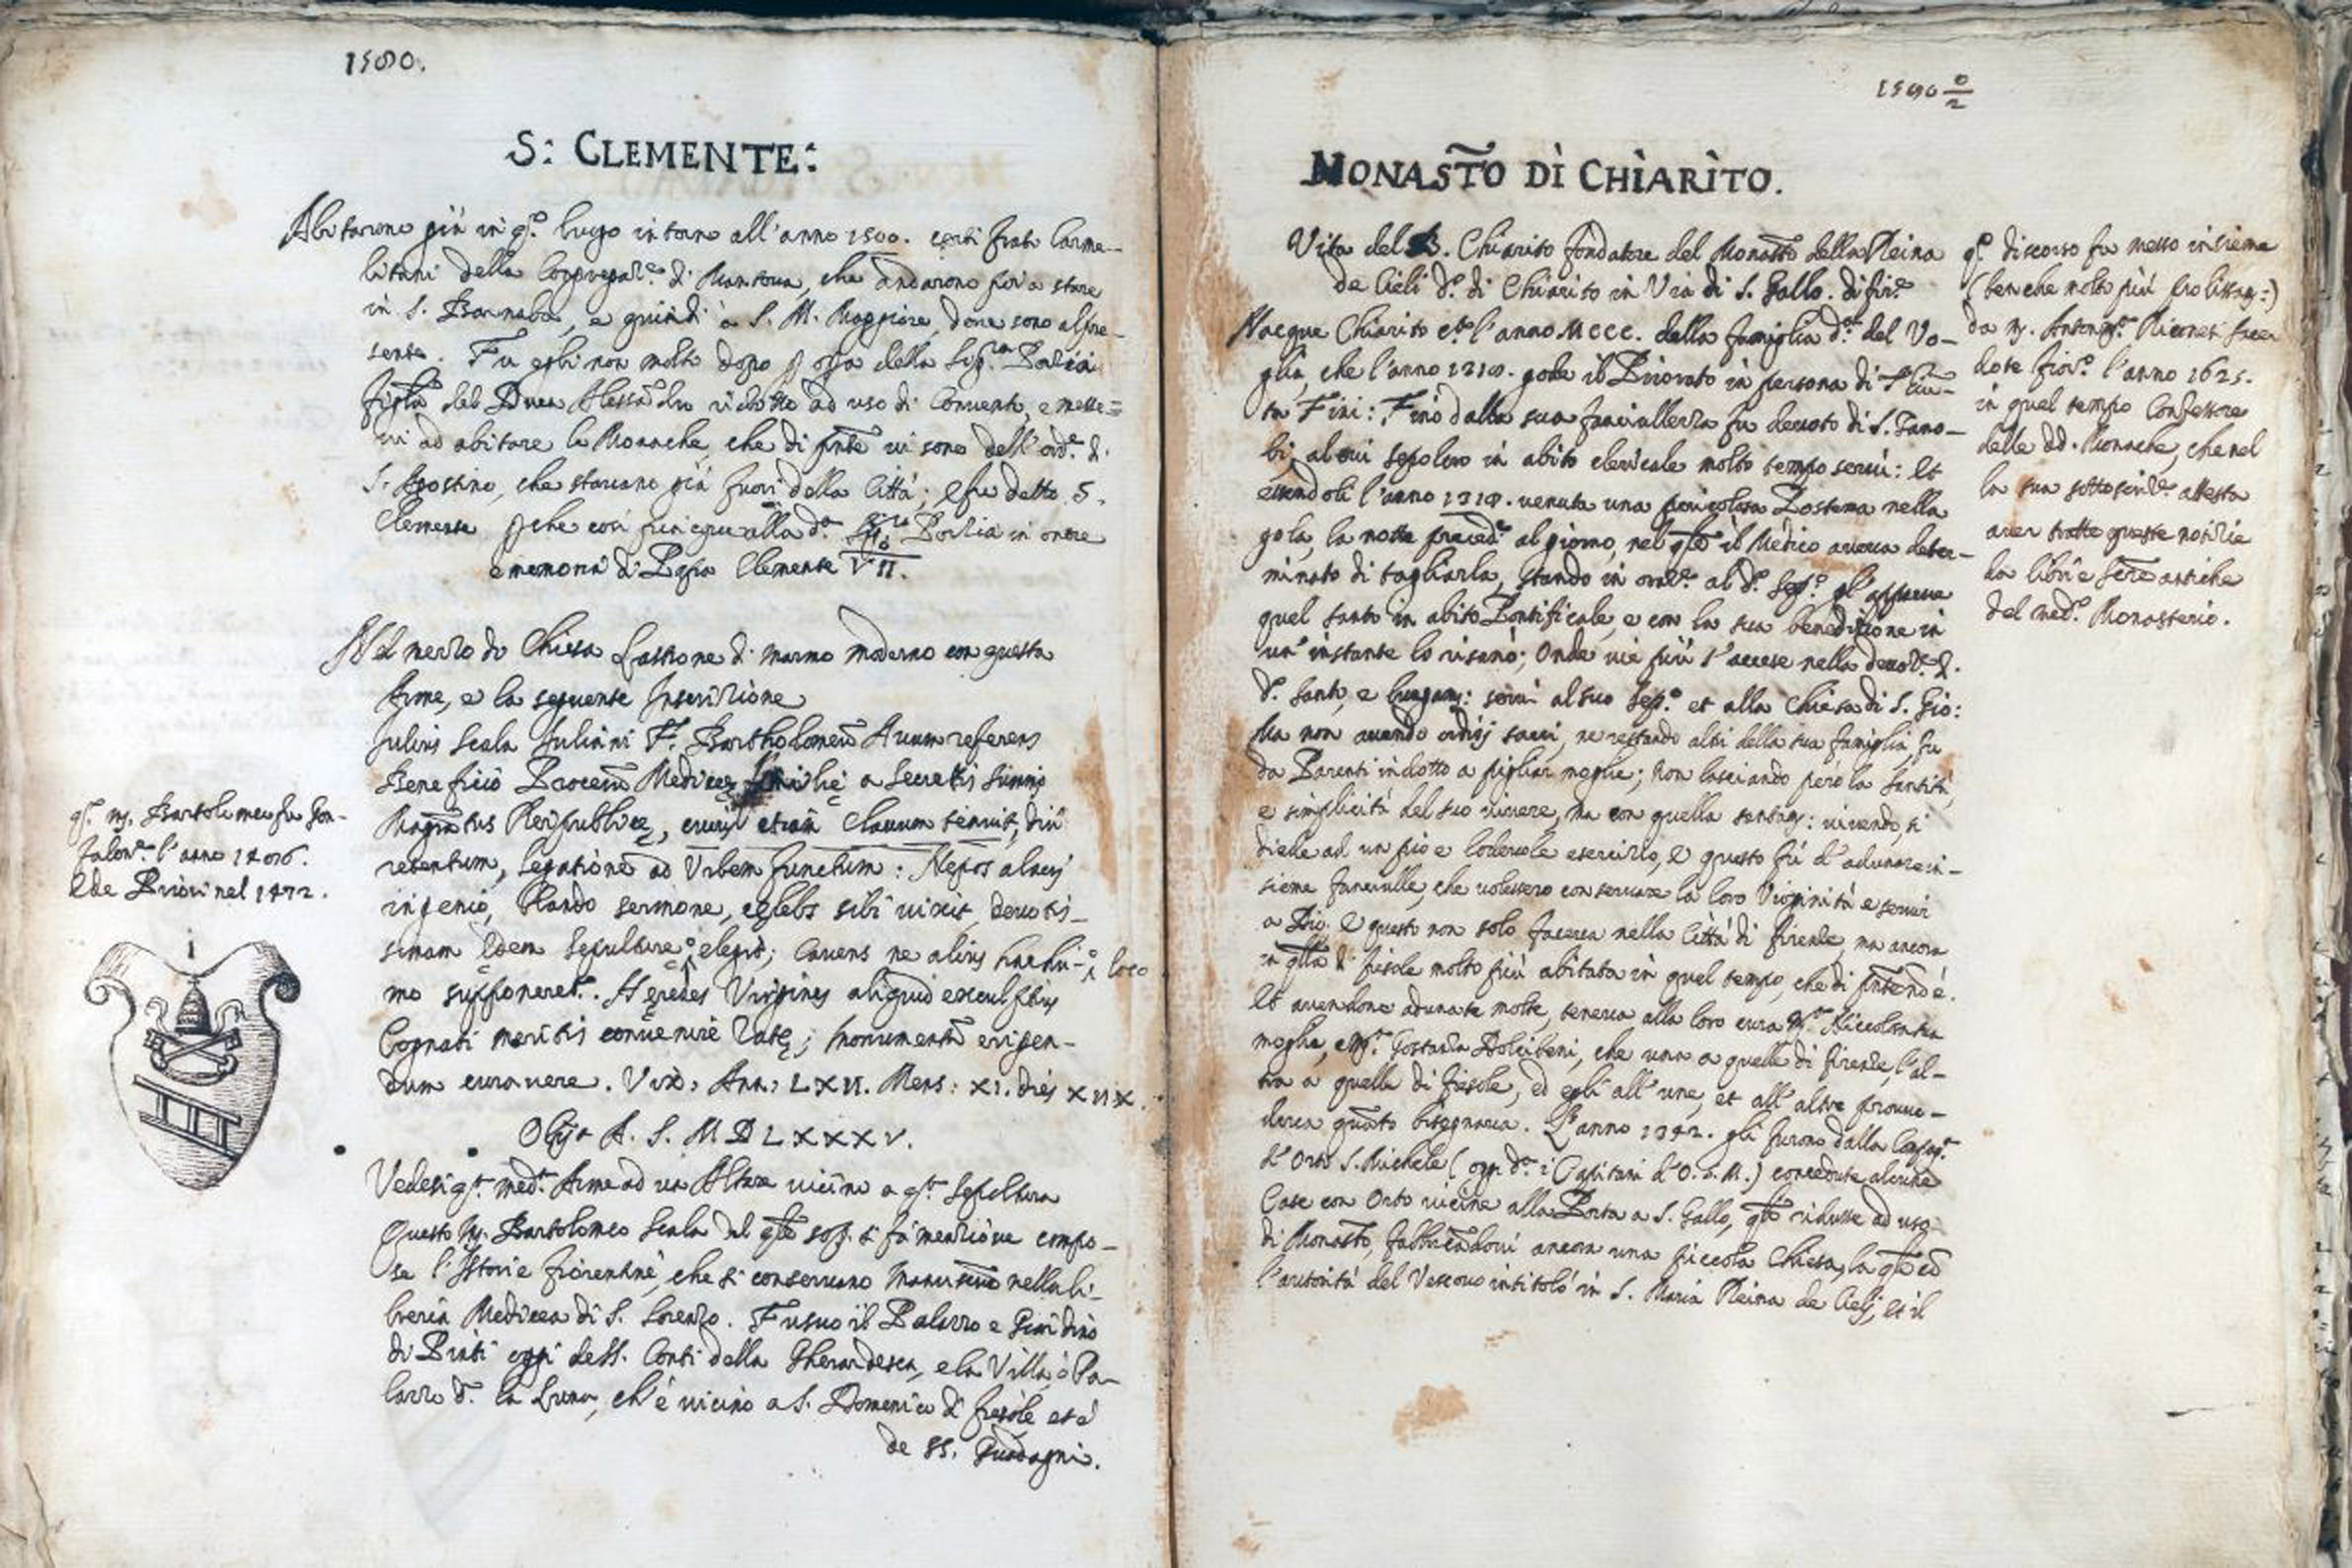 1500.
S: CLEMENTE:
Abitarono già in q.o luogo intorno all'anno 1500. certi frati Carme-
litani della Congregaz.e di Mantova, che andarono poi a stare
in S. Barnaba, e quindi a S. M. Maggiore, dove sono al pre-
sente. Fu egli non molto dopo p opa della Sig.ra Porzia
figla del Duca Alessandro ridotto ad uso di Convento, e messe=
vi ad abitare le Monache, che di pnte vi sono dell'ord.e di
S. Agostino, che stavano già fuori della Città; e fu detto S.
Clemente pche così piacque alla d.a Sig.ra Porzia in onore
e memoria di Papa Clemente VII.
Nel mezzo di Chiesa Lastrone di marmo moderno con questa
Arme, e la seguente Inscrizione
Julius Scala Juliani F. Bartholomeū Avum referens
Beneficio Procerū Medicee Familie a Secretis Summis
Magratus Reipublice, cuius etiam Clavum tenuit, diu
retentum, legatione ad Urbem functum: Nepos alacris
ingenio, blando sermone, celebs sibi vixit, devotis-
simam Edem Sepulture elegit; Cavens ne alius hachi- loco
mo supponeret.r. Heredes Virgines aliquid excultius
Cognati meritis convenire rate; monumentū erigen-
dum curavere. Vix: Ann: LXII. Mens: XI. dies XIIX.
Obijt A. S. MDLXXXV.
Vedesi q.a med.a Arme ad un Altare vicino a q.a Sepoltura
Questo M. Bartolomeo Scala del qle sop. si fà menzione compo-
se l'Istorie fiorentine, che si conservano manuscritte nella li-
breria Medicea di S. Lorenzo. Fu suo il Palazzo e Giardino
di Pinti oggi de SS. Conti della Gherardesca, e la Villa, ò Pa-
lazzo d.o la Luna, ch'è vicino a S. Domenico di Fiesole, et è
de SS. Guadagni.
q.o m. Bartolomeo fu Gon-
falon.e l'anno 1486.
E de Priori nel 1472.
1500 0/2
MONASTO DI CHIARITO.
Vita del B. Chiarito fondatore del Monasto della Reina
de Cieli d.o di Chiarito in Via di S. Gallo. di fir.e
Nacque Chiarito l'anno MCCC. della famiglia d.a del Vo-
glia, che l'anno 1310. gode il Priorato in persona di
Fini: Fino dalla sua fanciullezza fu devoto di S. Zano-
bi, al cui sepolcro in abito clericale molto tempo servì: Et
essendoli l'anno 1318. venuta una pericolosa Postema nella
gola, la notte preced.e al giorno, nel qle il Medico aveva deter-
minato di tagliarla, stando in oraz.e al d.o Sep.o gl'apparve
quel santo in abito Pontificale, e con la sua benedizione in
un'instante lo risanò; Onde vie più s'accese nella devoz.e d.
d.o Santo, e lungam: servì al suo Sep.o et alla Chiesa di S. Gio:
Ma non avendo ordij sacri, ne restando altri della sua famiglia, fu
da Parenti indotto a pigliar moglie; non lasciando però la santità,
e simplicità del suo vivere, ma con quella santam: vivendo, si
diede ad un pio e lodevole esercizio, e questo fù d'adunare in-
sieme fanciulle, che volessero conservare la loro Virginità e servir
a Dio. E questo non solo faceva nella Città di firenze, ma ancora
in qlla di fiesole molto più abitata in quel tempo, che di pnte nō è.
Et avendone adunate molte, teneva alla loro cura M.a Niccolosa sua
moglie, e M.a Gostanza Dolcibeni, che una a quelle di firenze, l'al-
tra a quelle di fiesole, ed egli all'une, et all'altre provve-
deva qto bisognava. L'anno 1342. gli furono dalla Compag.a
d'Orto S. Michele (ogg. d.a i Capitani d'O. S. M.) concedute alcune
Case con Orto vicine alla Porta a S. Gallo, qle ridusse ad uso
di Monasto, fabbricādovi ancora una piccola Chiesa, la qle cō
l'autorità del Vescovo intitolò in S. Maria Reina de Cieli; et il
q.o discorso fu messo insieme
(ben che molto più prolissam:)
da M. Anton M.a Riconesi sacer
dote fior.o l'anno 1625.
in quel tempo Confessore
delle dd. Monache, che nel
la sua sottoscriz.e attesta
aver tratte queste notizie
da libri e scrē antiche
del med.o Monasterio.